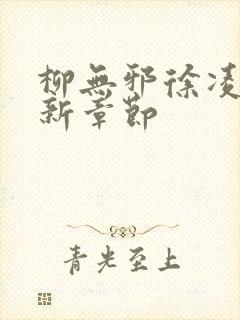 柳無邪徐凌
新章節
青光至上